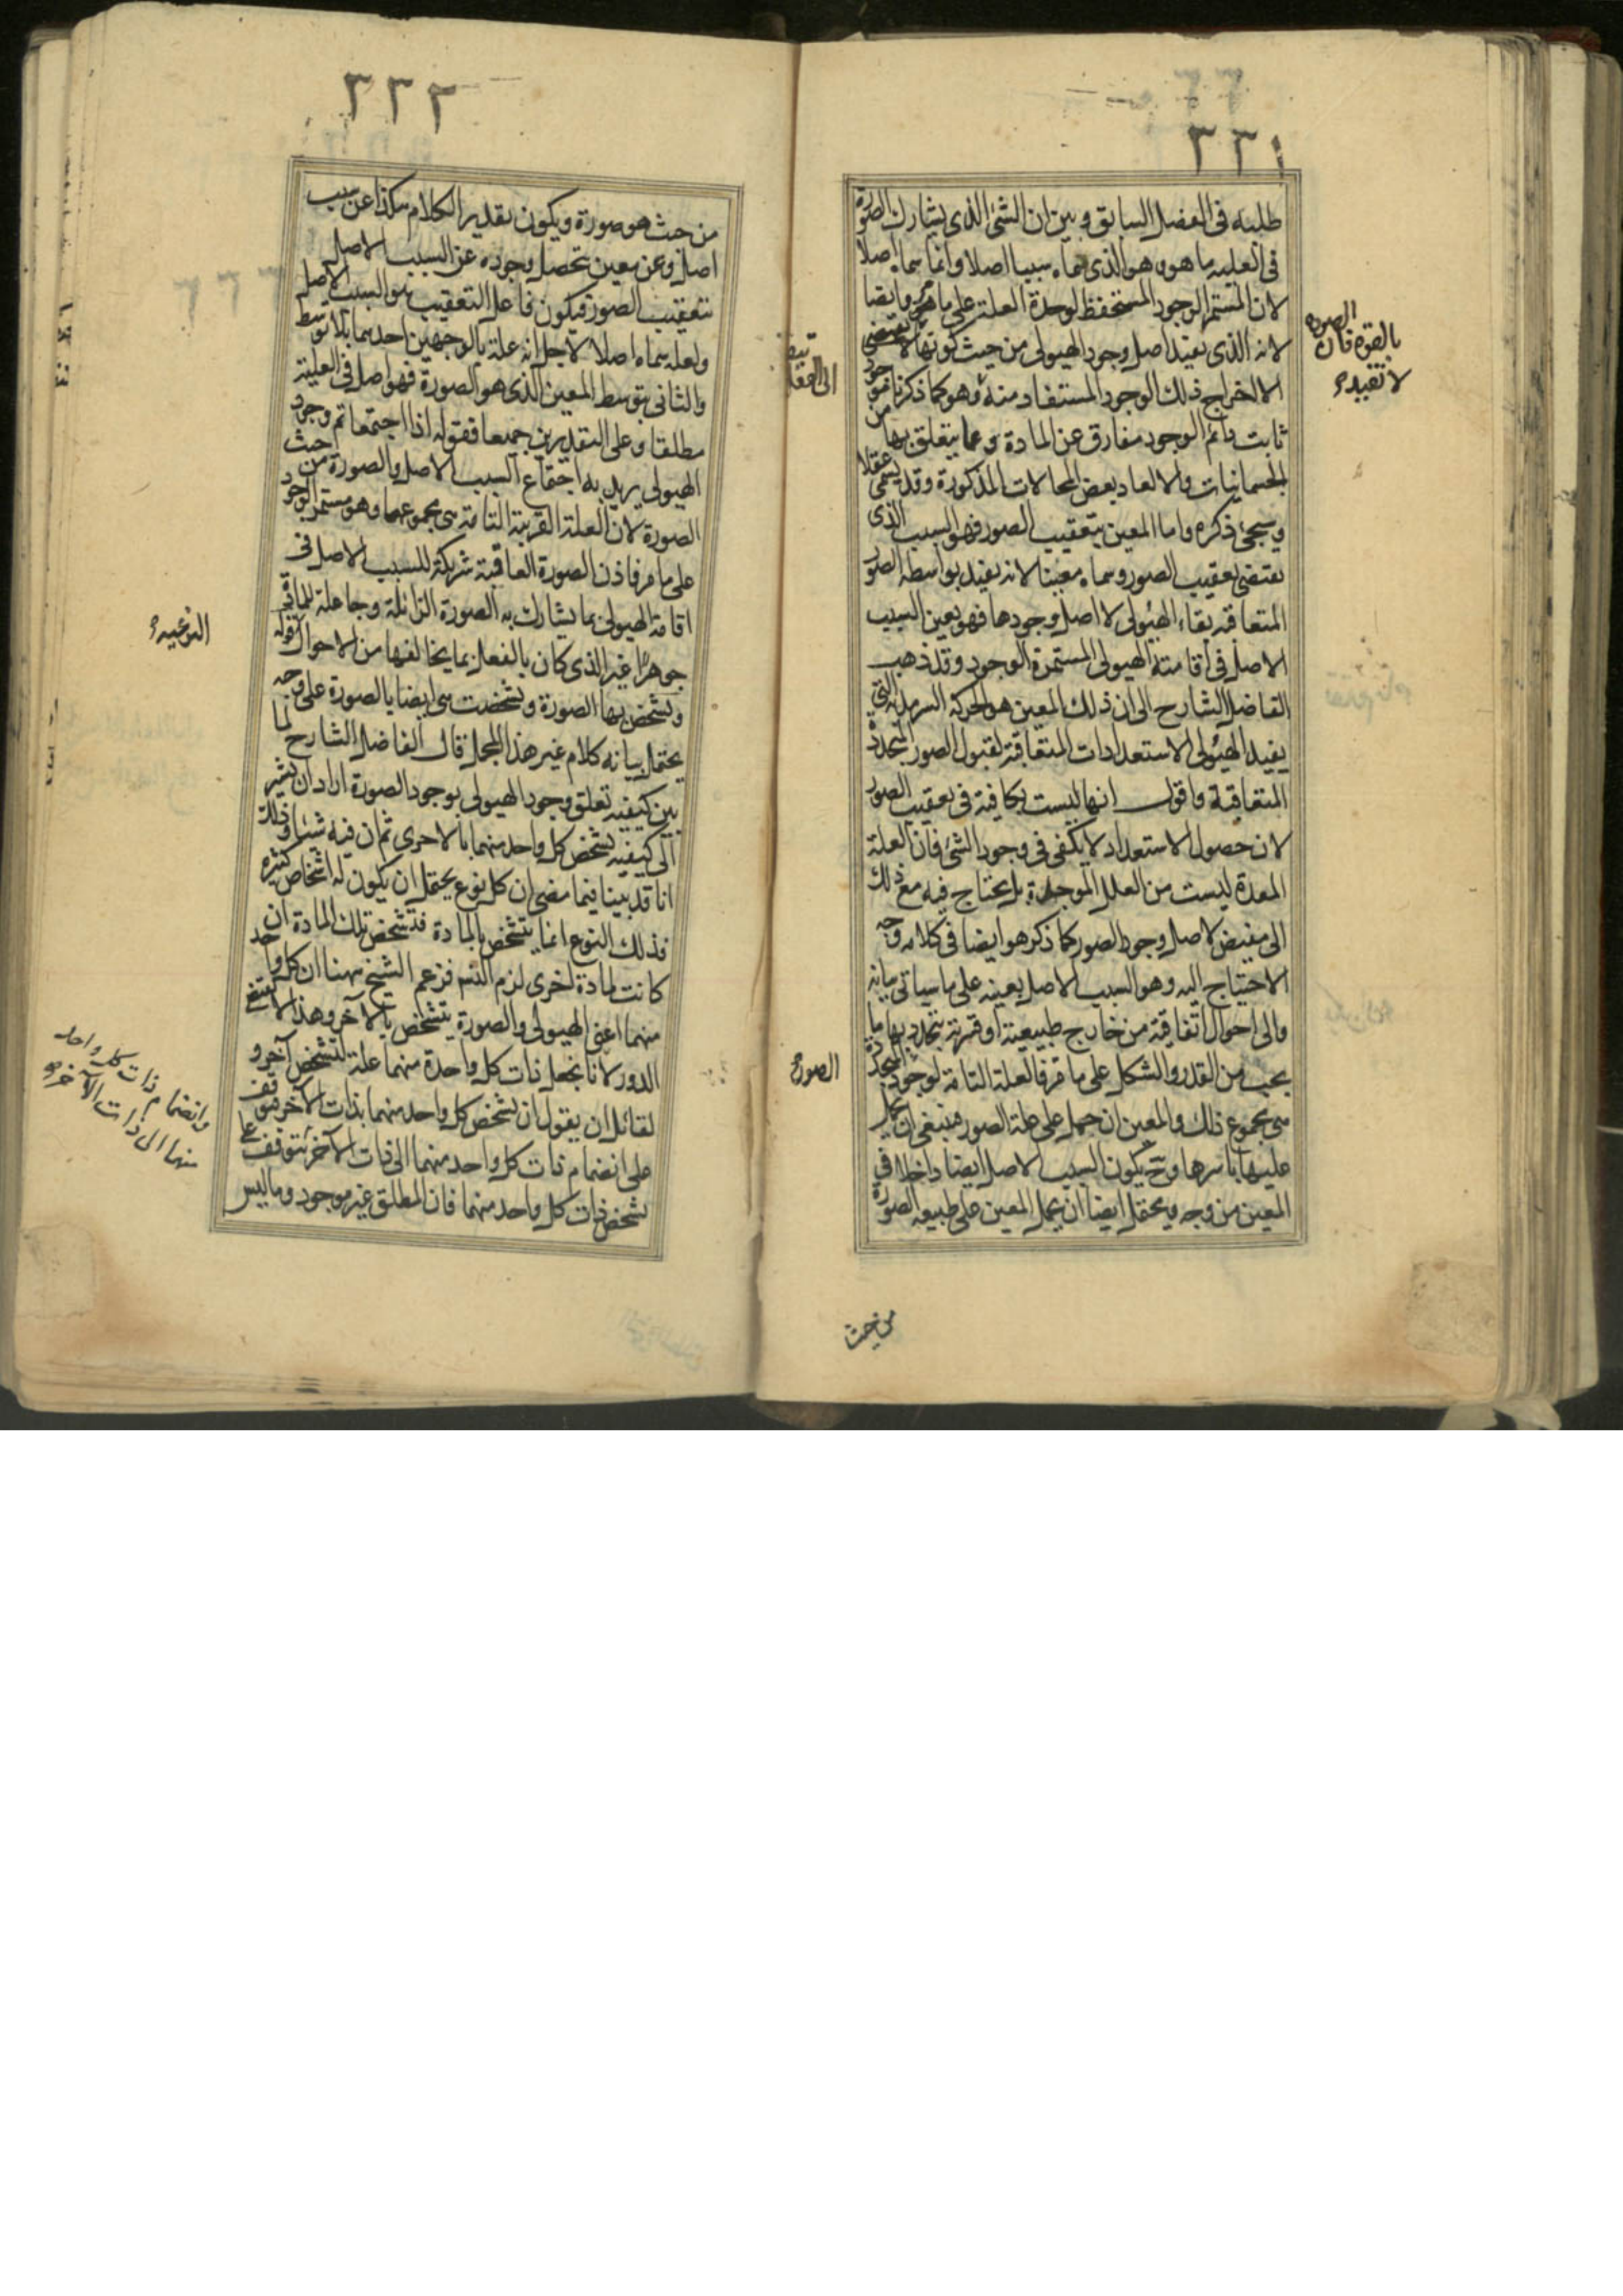 ٣٣١
طلبه فى الفصل السابق وبين ان الشئ الذى يشارك الصورة
فى العلية ما هو وهو الذى سماه سببا اصلا وانما سماه اصلا
لان المستمر الوجود المستحفظ لوحدة العلة على ما مر وايضا
لانه الذى يفيد اصل وجود الهيولى من حيث كونها لا تقتضى
الا اخراج ذلك الوجود المستفاد منه وهو كما ذكرنا موجود
ثابت دائم الوجود مفارق عن المادة وعما يتعلق بها من
الجسمانيات والا لعاد بعض المحالات المذكورة وقد يسمى عقلا
وسيجئ ذكره واما المعين بتعقيب الصور فهو السبب الذى
يقتضى تعقيب الصور وسماه معينا لانه يفيد بواسطة الصور
المتعاقبة بقاء الهيولى لا اصل وجودها فهو يعين السبب
الاصل فى اقامته الهيولى المستمرة الوجود وقد ذهب
الفاضل الشارح الى ان ذلك المعين هو الحركة السرمدية التى
يفيد الهيولى الاستعدادات المتعاقبة لقبول الصور المتجددة
المتعاقبة واقول انها ليست بكافية فى تعقيب الصور
لان حصول الاستعداد لا يكفى فى وجود الشئ فان العلة
المعدة ليست من العلل الموجدة بل يحتاج فيه مع ذلك
الى مفيض لاصل وجود الصور كما ذكر هو ايضا فى كلامه وجه
الاحتياج اليه وهو السبب الاصل بعينه على ما سياتى بيانه
والى احوال اتفاقية من خارج طبيعية او قسرية يتحدد بها ما
يجب من القدر والشكل على ما مر فالعلة التامة لوجود المتجددة
هى مجموع ذلك والمعين ان حمل على علة الصور فينبغى ان يحمل
عليها باسرها وح يكون السبب الاصل ايضا داخلا فى
المعين من وجه ويحتمل ايضا ان يحمل المعين على طبيعة الصورة
من حيث
الصورة
بالقوة فان
لا تقيده
الصورة
٣٣٢
من حيث هو صورة ويكون تقدير الكلام هكذا عن سبب
اصل وعن معين تحصل وجوده عن السبب الاصل
بتعقيب الصور فيكون فاعل التعقيب هو السبب الاصل
ولعله سماه اصلا لاجل انه علة بالوجهين احدهما بلا توسط
والثانى بتوسط المعين الذى هو الصورة فهو اصل فى العلية
مطلقا وعلى التقديرين جميعا فقوله اذا اجتمعا تم وجود
الهيولى يريد به اجتماع السبب الاصل والصورة من حيث
الصورة لان العلة القريبة التامة هى مجموعهما وهو مستمر الوجود
على ما مر فاذن الصورة العاقبة شريكة للسبب الاصل فى
اقامة الهيولى بما يشارك به الصورة الزائلة وجاعلة للمادة
جوهرا غير الذى كان بالفعل بما يخالفها من الاحوال قوله
وتشخص بها الصورة وتشخصت هى ايضا بالصورة على وجه
يحتمل بيانه كلام غير هذا المجمل قال الفاضل الشارح لما
بين كيفية تعلق وجود الهيولى بوجود الصورة اراد ان يشير
الى كيفية تشخص كل واحد منهما بالاخرى ثم ان فيه شيئا وذلك
انا قد بينا فيما مضى ان كل نوع يحتمل ان يكون له اشخاص كثيرة
فذلك النوع انما يتشخص بالمادة فتشخص تلك المادة ان
كانت لمادة اخرى لزم التسم فزعم الشيخ ههنا ان كل واحد
منهما اعنى الهيولى والصورة يتشخص بالآخر وهذا لا يقتضى
الدور لانا نجعل ذات كل واحدة منهما علة لتشخص آخر و
لقائل ان يقول ان تشخص كل واحد منهما بذات الآخر موقف
على انضمام ذات كل واحد منهما الى ذات الآخر يتوقف على
تشخص ذات كل واحد منهما فان المطلق غير موجود وما ليس
النوعية
وانضمام ذات كل واحد
منهما الى ذات الآخر